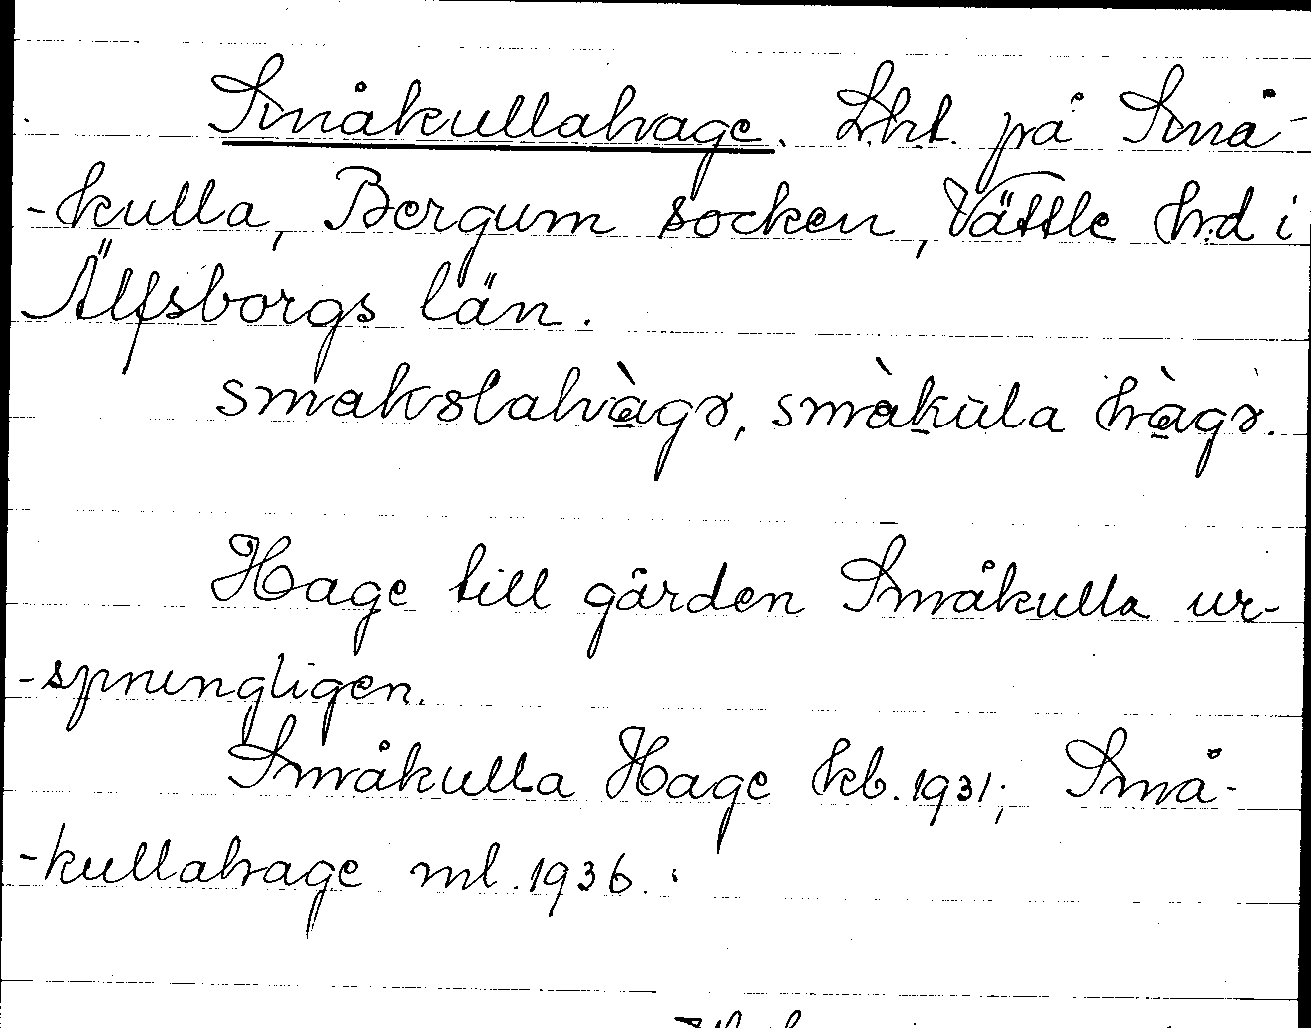 Småkullahage. Lht. på Små-
-kulla, Bergum socken, Vättle hrd i
Älfsborgs län.
smakslahàgr, smàkùla hàgr.
Hage till gården Småkulla ur-
-sprungligen.
Småkulla Hage kb. 1931; Små-
-kullahage ml. 1936.